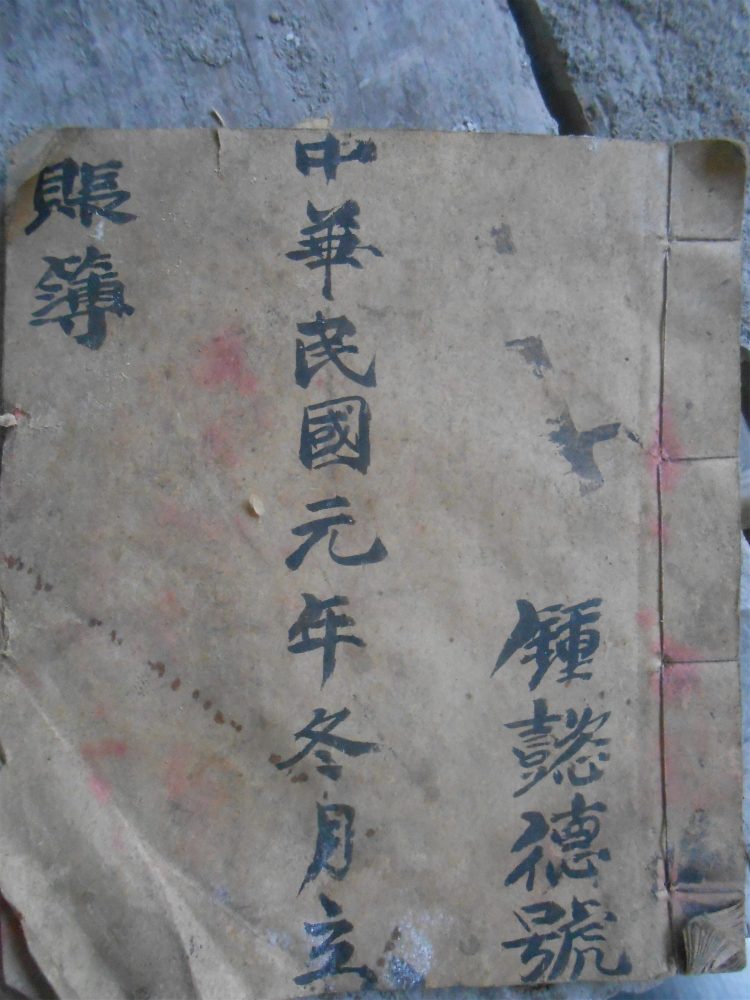 鍾懿德號
中華民國元年冬月立
賬簿